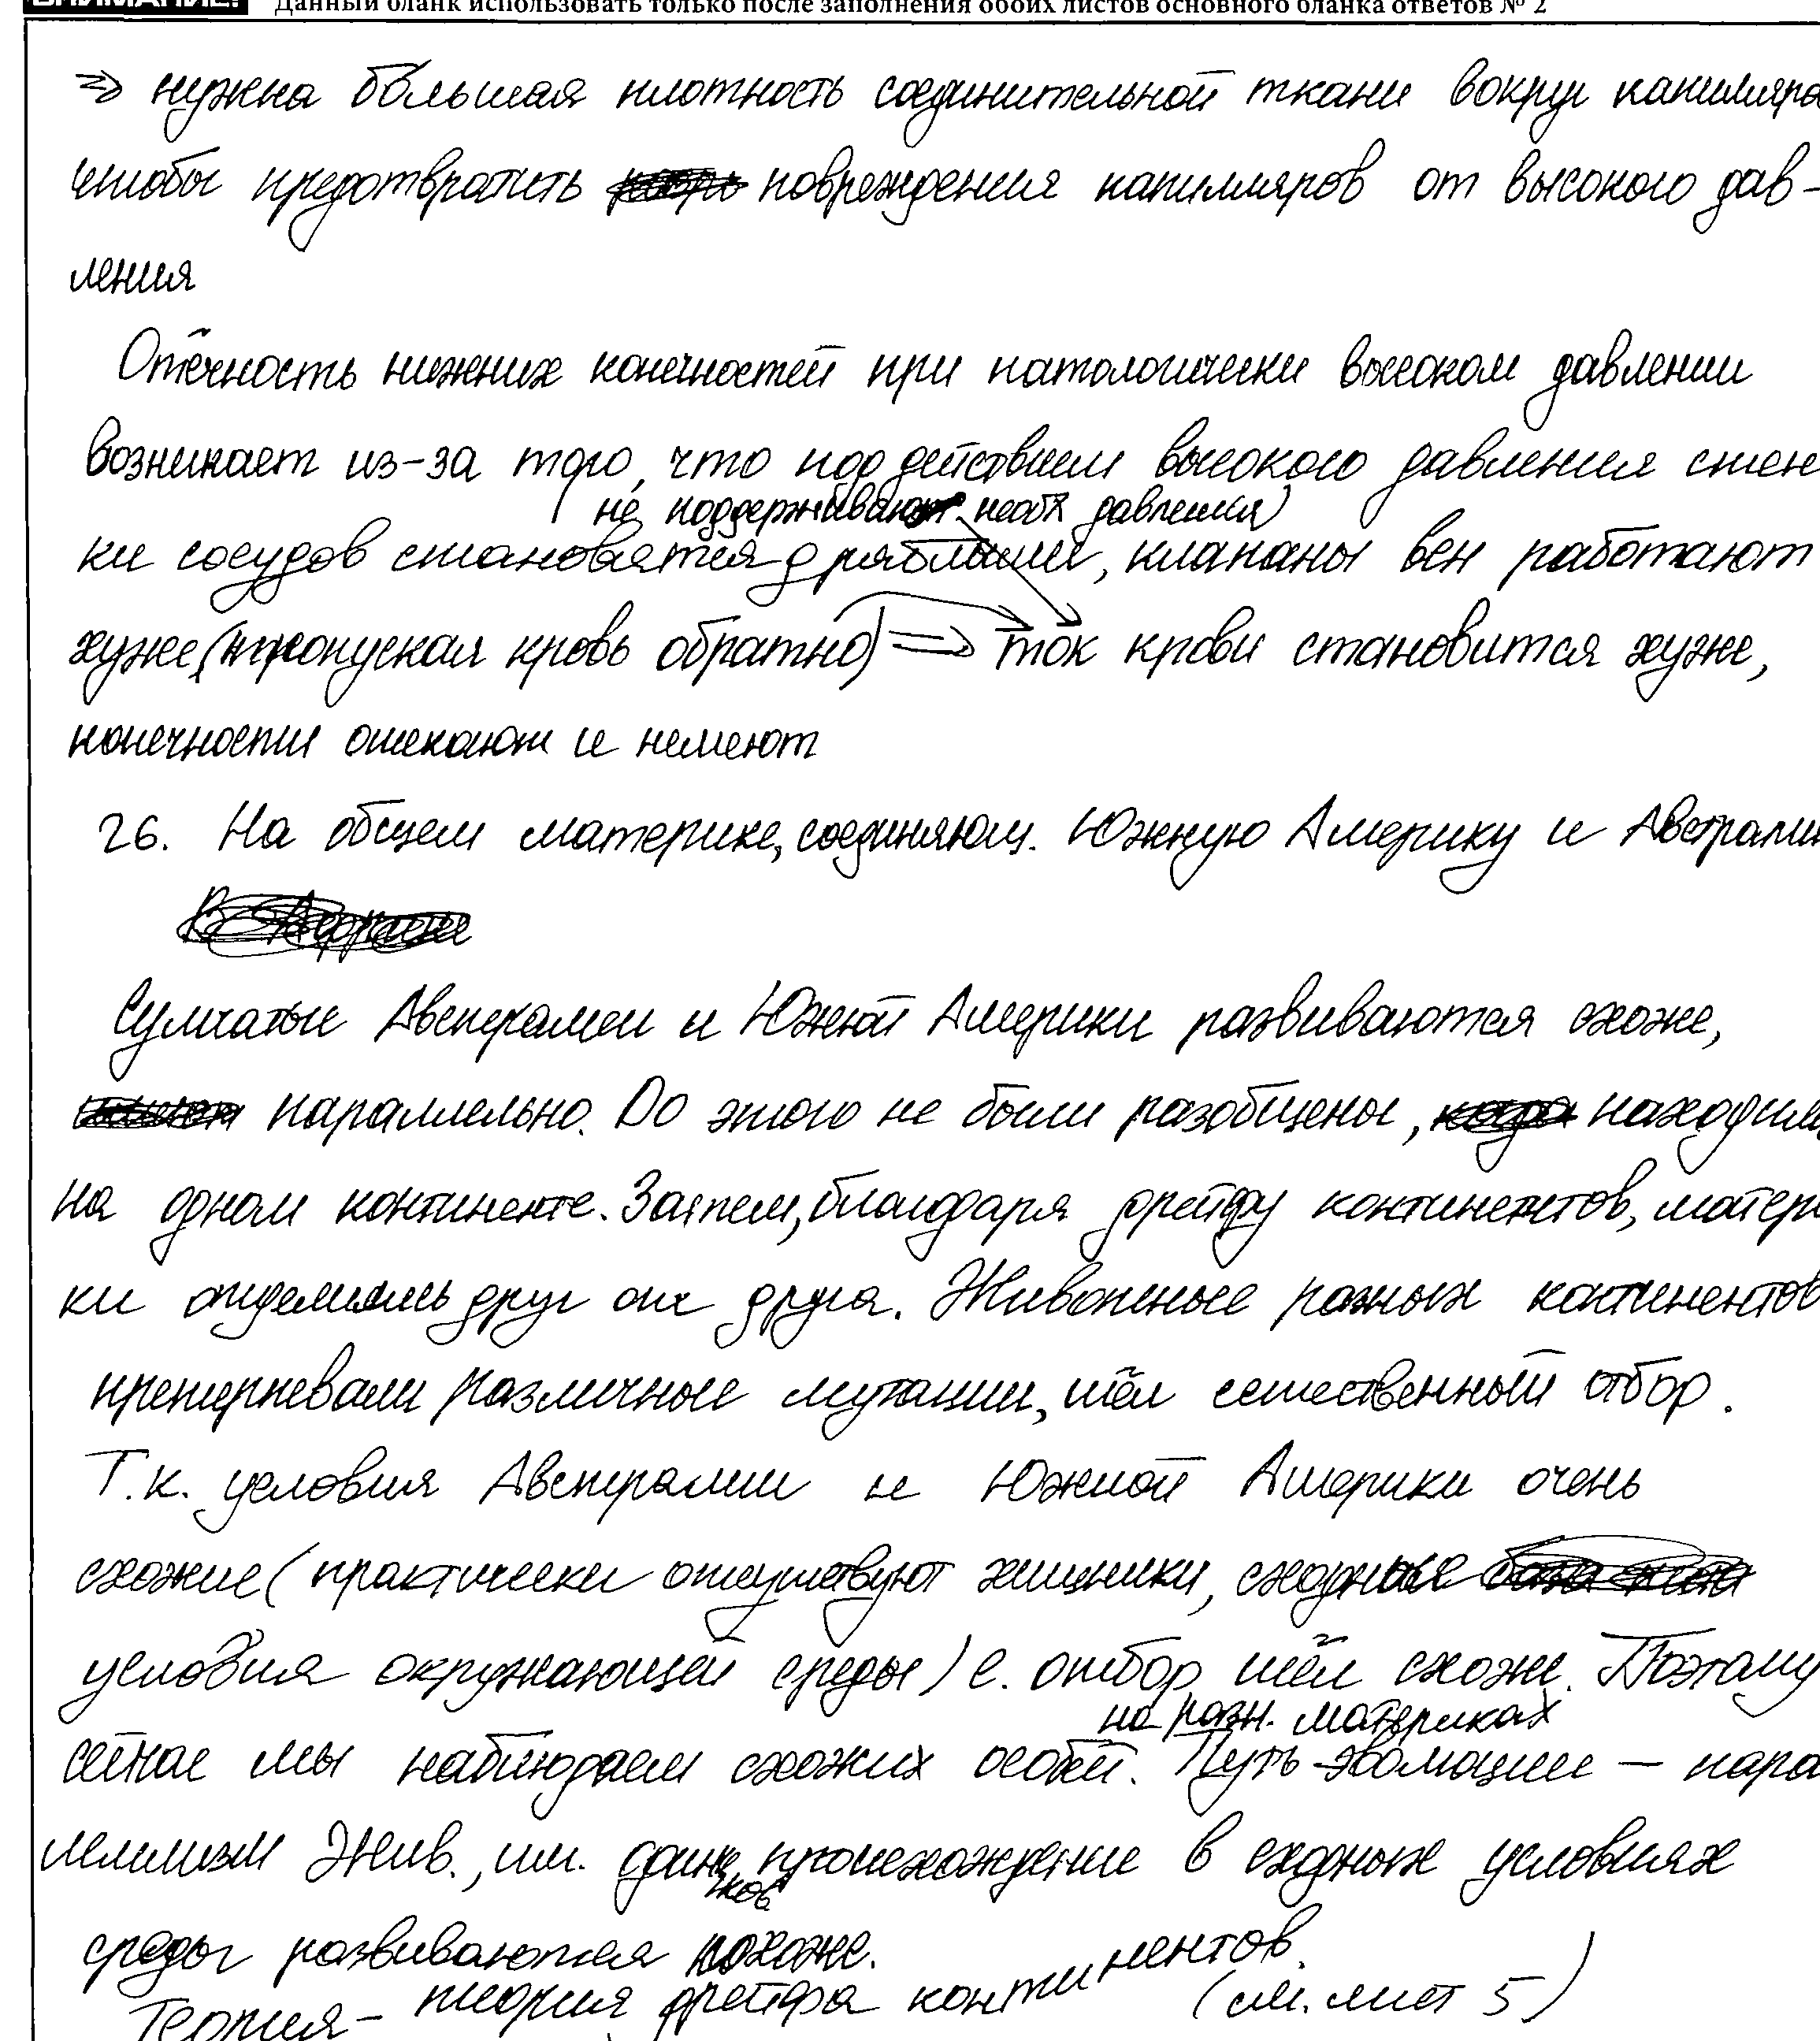 ВНИМАНИЕ! Данный бланк использовать только после заполнения обоих листов основного бланка ответов № 2
⇒ нужна бо́льшая плотность соединительной ткани вокруг капилляро
чтобы предотвратить повреждения капилляров от высокого дав-
ления
Отёчность нижних конечностей при патологически высоком давлении
возникает из-за того, что под действием высокого давления стен
не поддерживают необх давления)
ки сосудов становятся дряблыми, клапаны вен работают
хуже (пропуская кровь обратно) ⇒ ток крови становится хуже,
конечности отекают и немеют
26. На общем материке, соединяющ. Южную Америку и Австрали
Сумчатые Австралии и Южной Америки развиваются схоже,
параллельно. До этого не были разобщены, находили
на одном континенте. Затем, благодаря дрейфу континентов, матери
ки отделились друг от друга. Животные разных континентов
претерпевали различные мутации, шёл естественный отбор.
Т.к. условия Австралии и Южной Америки очень
схожие (практически отсутствуют хищники, сходные
условия окружающей среды) е. отбор шёл схоже. Поэтому
на разн. материках
сейчас мы наблюдаем схожих особей. Путь эволюции – пара
ллелизм Жив., им. одинаковое происхождение в сходных условиях
среды развиваются похоже.
Теория – теория дрейфа континентов. (см. лист 5)